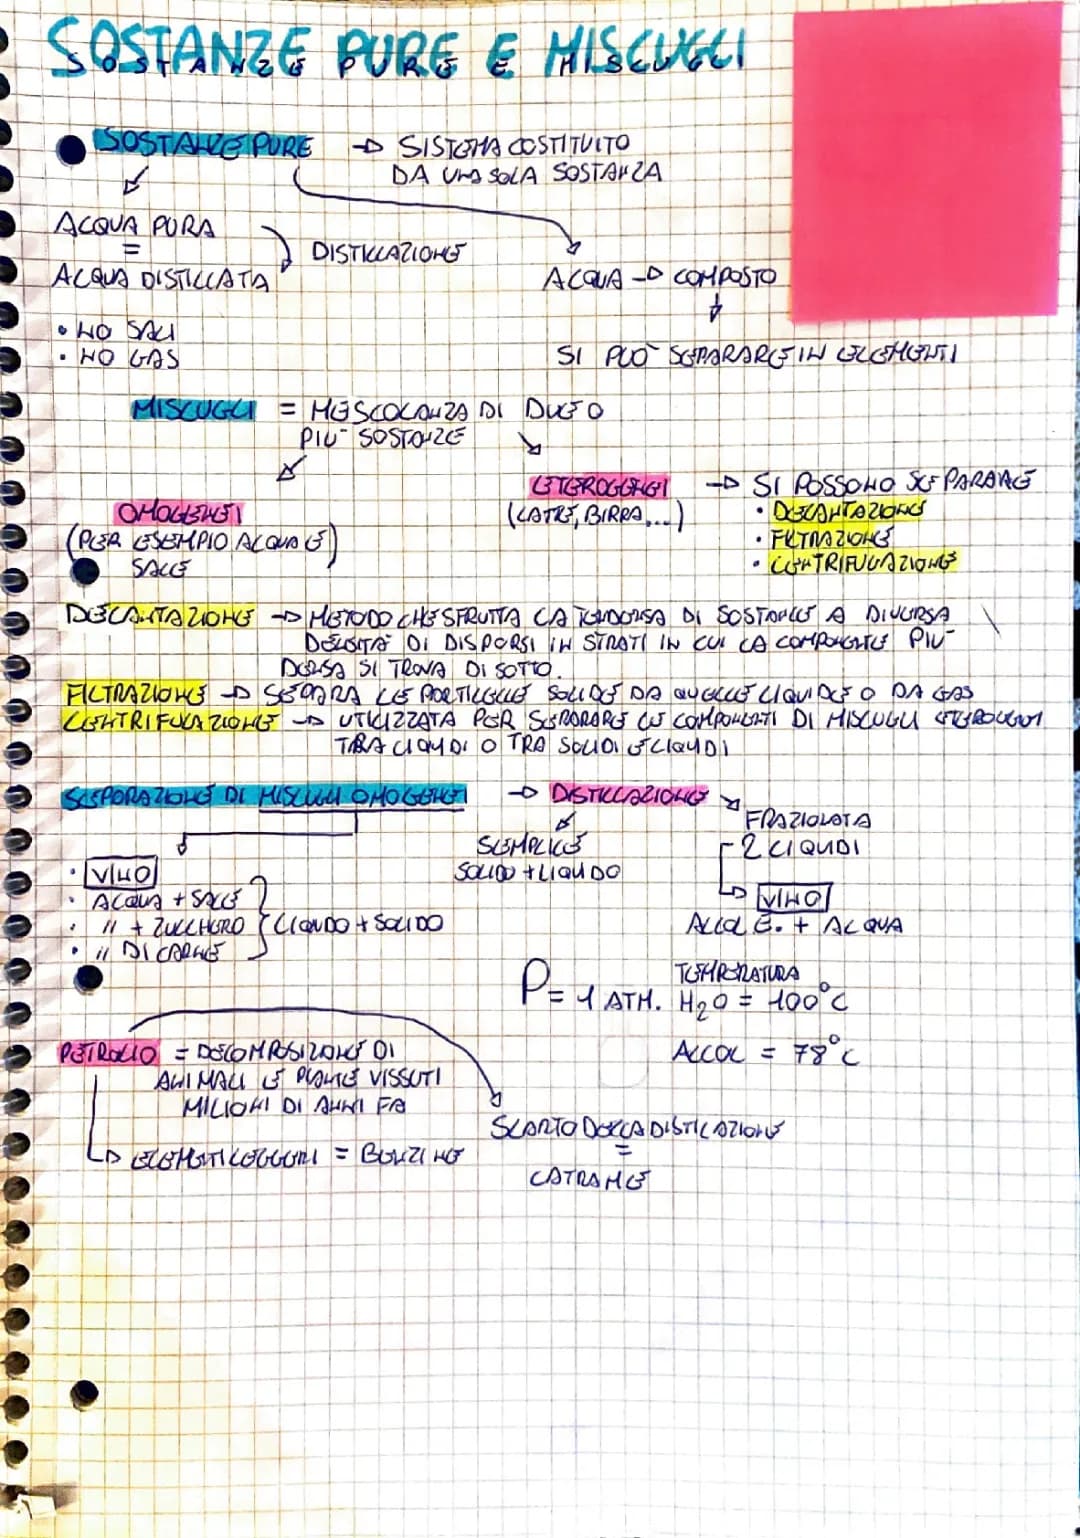 SOSTANZE PURE E MISCUGLI
SOSTANZE PURE → SISTEMA COSTITUITO
DA UNA SOLA SOSTANZA
ACQUA PURA
=
ACQUA DISTILLATA
DISTILLAZIONE
ACQUA → COMPOSTO
• NO SALI
• NO GAS
SI PUÒ SEPARARE IN ELEMENTI
MISCUGLI = MESCOLANZA DI DUE O
PIÙ SOSTANZE
OMOGENEI
(PER ESEMPIO ACQUA E)
SALE
ETEROGENEI
(LATTE, BIRRA,...)
→ SI POSSONO SEPARARE
• DECANTAZIONE
• FILTRAZIONE
• CENTRIFUGAZIONE
DECANTAZIONE → METODO CHE SFRUTTA LA TENDENSA DI SOSTANZE A DIVERSA
DENSITÀ DI DISPORSI IN STRATI IN CUI LA COMPONENTE PIÙ
DENSA SI TROVA DI SOTTO.
FILTRAZIONE → SEPARA LE PARTICELLE SOLIDE DA QUELLE LIQUIDE O DA GAS
CENTRIFUGAZIONE → UTILIZZATA PER SEPARARE LE COMPONENTI DI MISCUGLI ETEROGENEI
TRA LIQUIDI O TRA SOLIDI E LIQUIDI
SEPARAZIONE DI MISCUGLI OMOGENEI → DISTILLAZIONE
SEMPLICE
SOLIDO + LIQUIDO
FRAZIONATA
2 LIQUIDI
VINO
ALCOL E. + ACQUA
• VINO
• ACQUA + SALE
• " + ZUCCHERO
• " DI CARNE
LIQUIDO + SOLIDO
P = 1 ATM.
TEMPERATURA
H₂O = 100°C
ALCOL = 78°C
PETROLIO = DECOMPOSIZIONE DI
ANIMALI E PIANTE VISSUTI
MILIONI DI ANNI FA
→ ELEMENTI LEGGERI = BENZINE
SCARTO DELLA DISTILAZIONE
=
CATRAME